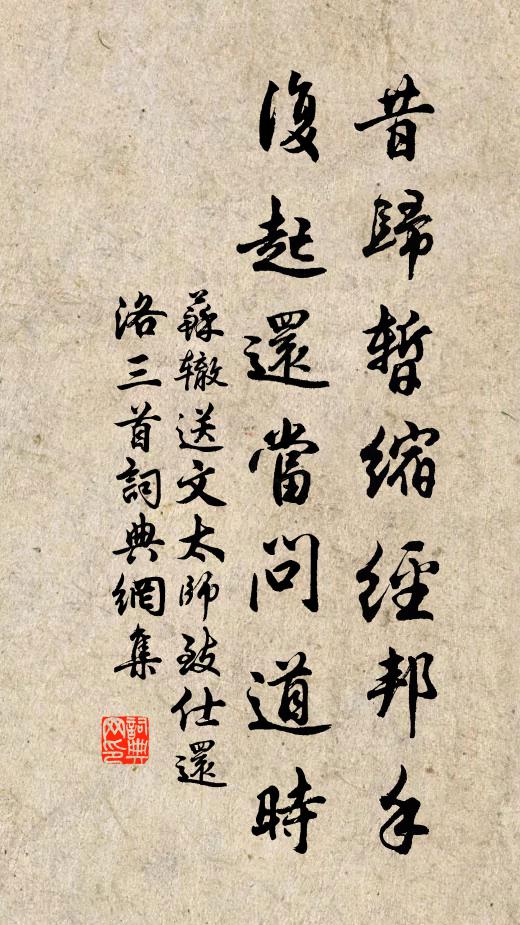 昔歸暫縮經邦手
復起還當問道時
蘇轍送文太師致仕還
洛三首詞典網集
詞典网印